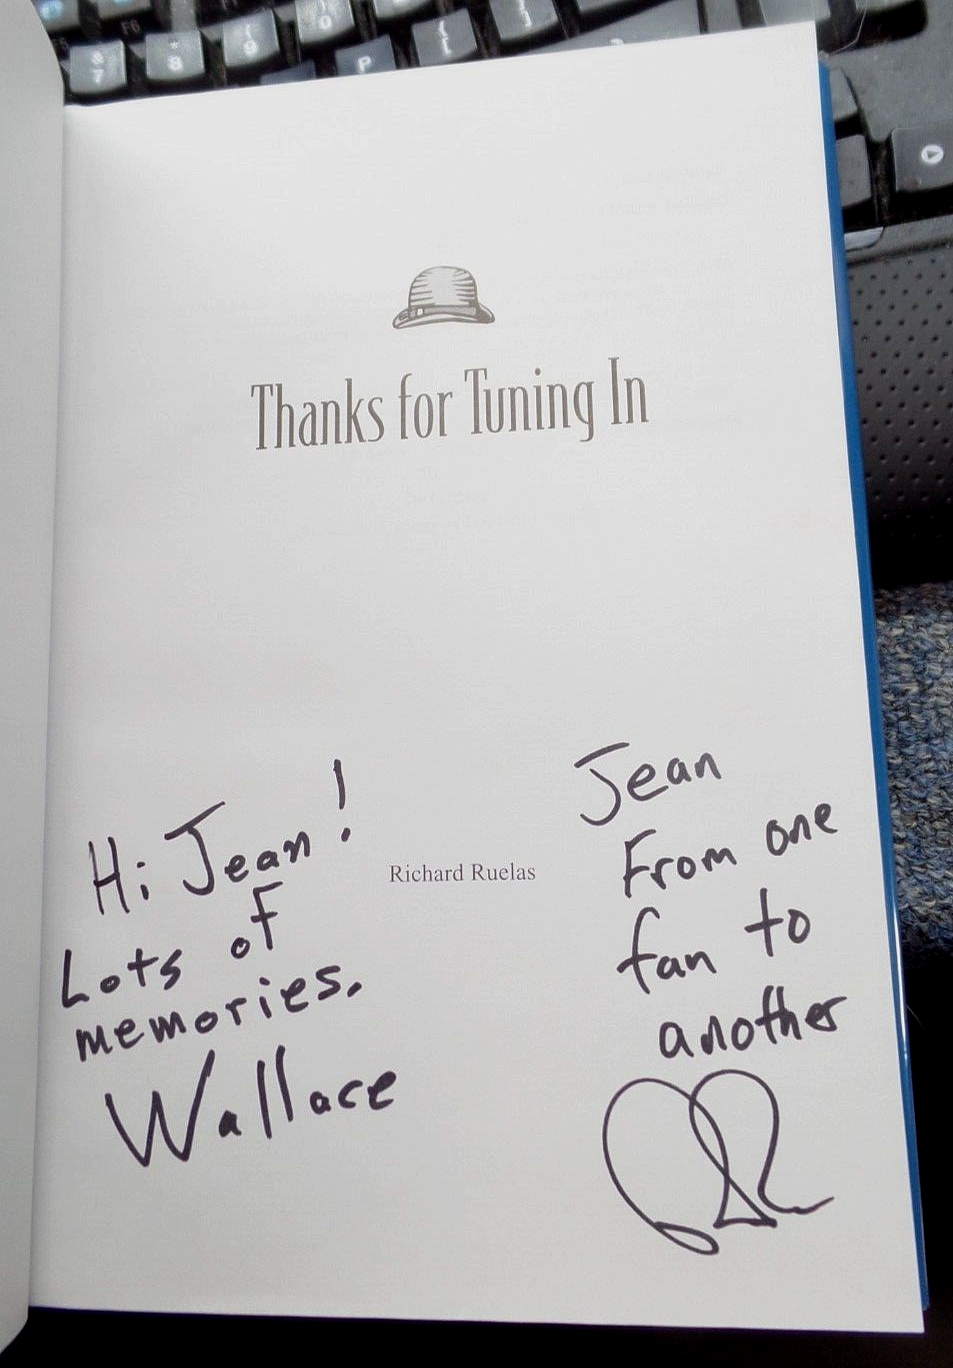 & 7
* 8
( 9
) 0
P
{ [
} ]
Thanks for Tuning In
Richard Ruelas
Hi Jean!
Lots of
memories.
Wallace
Jean
From one
fan to
another